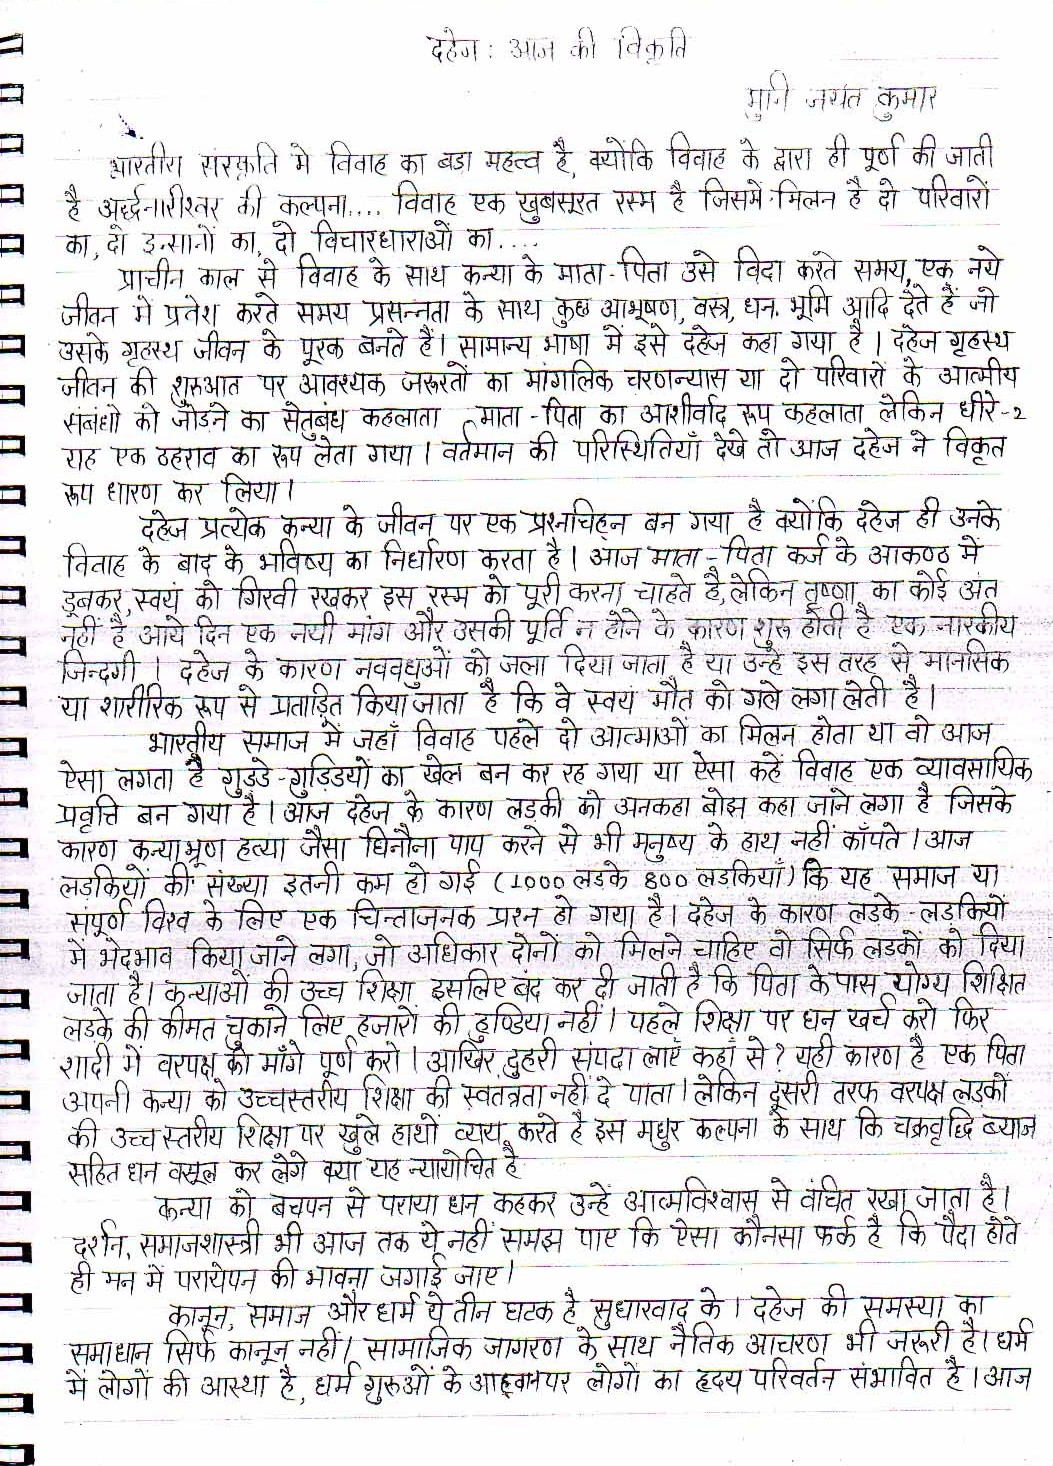 दहेज : आज की विकृति
मुनि जयंत कुमार
भारतीय संस्कृति मे विवाह का बडा महत्व है, क्योंकि विवाह के द्वारा ही पूर्ण की जाती
है अर्द्धनारीश्वर की कल्पना.... विवाह एक खुबसूरत रस्म है जिसमें मिलन है दो परिवारों
का, दो इन्सानों का, दो विचारधाराओं का....
प्राचीन काल से विवाह के साथ कन्या के माता-पिता उसे विदा करते समय, एक नये
जीवन में प्रवेश करते समय प्रसन्नता के साथ कुछ आभूषण, वस्त्र, धन, भूमि आदि देते हैं जो
उसके गृहस्थ जीवन के पूरक बनते हैं। सामान्य भाषा में इसे दहेज कहा गया है। दहेज गृहस्थ
जीवन की शुरुआत पर आवश्यक जरूरतों का मांगलिक चरणान्यास या दो परिवारों के आत्मीय
संबंधों को जोडने का सेतुबंध कहलाता माता-पिता का आशीर्वाद रूप कहलाता लेकिन धीरे-२
यह एक ठहराव का रूप लेता गया। वर्तमान की परिस्थितियाँ देखे तो आज दहेज ने विकृत
रूप धारण कर लिया।
दहेज प्रत्येक कन्या के जीवन पर एक प्रश्नचिह्न बन गया है क्योंकि दहेज ही उनके
विवाह के बाद के भविष्य का निर्धारण करता है। आज माता-पिता कर्ज के आकण्ठ में
डूबकर, स्वयं को गिरवी रखकर इस रस्म को पूरी करना चाहते है, लेकिन तृष्णा का कोई अंत
नहीं है आये दिन एक नयी मांग और उसकी पूर्ति न होने के कारण शुरू होती है एक नारकीय
जिन्दगी। दहेज के कारण नववधुओं को जला दिया जाता है या उन्हे इस तरह से मानसिक
या शारीरिक रूप से प्रताड़ित किया जाता है कि वे स्वयं मौत को गले लगा लेती है।
भारतीय समाज में जहाँ विवाह पहले दो आत्माओं का मिलन होता था वो आज
ऐसा लगता है गुडडे-गुड़िडयों का खेल बन कर रह गया या ऐसा कहें विवाह एक व्यावसायिक
प्रवृत्ति बन गया है। आज दहेज के कारण लडकी को अनकहा बोझ कहा जाने लगा है जिसके
कारण कन्याभ्रूण हत्या जैसा घिनौना पाप करने से भी मनुष्य के हाथ नहीं काँपते। आज
लडकियों की संख्या इतनी कम हो गई (1000 लडके 800 लडकियाँ) कि यह समाज या
संपूर्ण विश्व के लिए एक चिन्ताजनक प्रश्न हो गया है। दहेज के कारण लडके-लडकियों
में भेदभाव किया जाने लगा, जो अधिकार दोनों को मिलने चाहिए वो सिर्फ लडकों को दिया
जाता है। कन्याओं की उच्च शिक्षा इसलिए बंद कर दी जाती है कि पिता के पास योग्य शिक्षित
लडके की कीमत चुकाने लिए हजारों की हुण्डिया नहीं। पहले शिक्षा पर धन खर्च करो फिर
शादी में वरपक्ष की माँगे पूर्ण करो। आखिर दुहरी संपदा लाएं कहाँ से? यही कारण है एक पिता
अपनी कन्या को उच्चस्तरीय शिक्षा की स्वतंत्रता नहीं दे पाता। लेकिन दूसरी तरफ वरपक्ष लडकों
की उच्च स्तरीय शिक्षा पर खुले हाथों व्यय करते है इस मधुर कल्पना के साथ कि चक्रवृद्धि ब्याज
सहित धन वसूल कर लेगे क्या यह न्यायोचित है
कन्या को बचपन से पराया धन कहकर उन्हें आत्मविश्वास से वंचित रखा जाता है।
दर्शन, समाजशास्त्री भी आज तक ये नहीं समझ पाए कि ऐसा कौनसा फर्क है कि पैदा होते
ही मन में परायेपन की भावना जगाई जाए।
कानून, समाज और धर्म ये तीन घटक है सुधारवाद के। दहेज की समस्या का
समाधान सिर्फ कानून नहीं। सामाजिक जागरण के साथ नैतिक आचरण भी जरूरी है। धर्म
में लोगों की आस्था है, धर्म गुरूओं के आह्वान पर लोगों का हृदय परिवर्तन संभावित है। आज